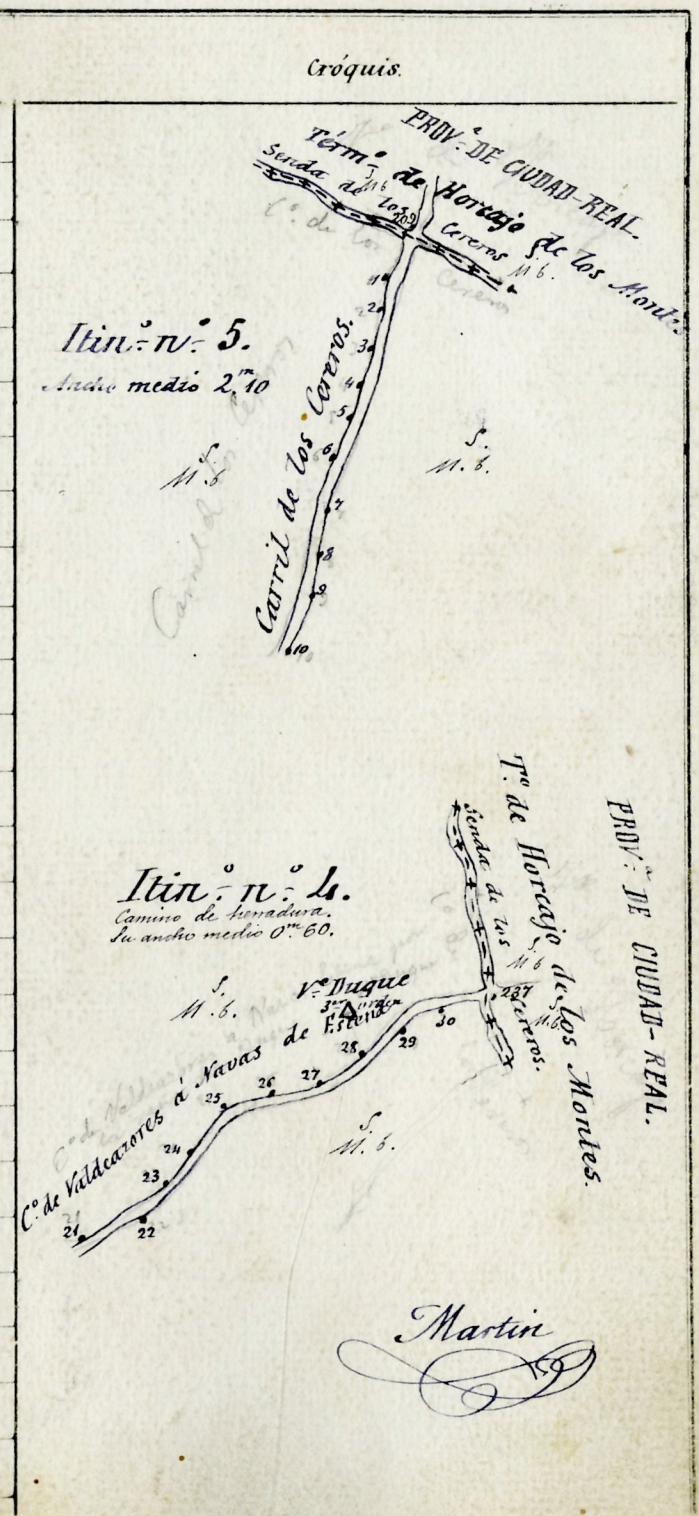 Cróquis.
PROVª DE CIUDAD-REAL.
Térmº de Horcajo de los Montes
Senda de los Cereros
S.
M. b.
S.
M. b.
1
2
3
4
5
6
7
8
9
10
Itinº nº 5.
Ancho medio 2,m10
Carril de los Cereros.
S.
M. b
S.
M. b.
PROVª DE CIUDAD-REAL.
Tº de Horcajo de los Montes.
Senda de los Cereros.
S.
M. b
S.
M. b.
Itinº nº 4.
Camino de herradura.
Su ancho medio 0m 60.
S.
M. b.
Vce Duque
3er órden
Cº de Valdeazores á Navas de Estena
237
21
22
23
24
25
26
27
28
29
30
S.
M. b.
Martin